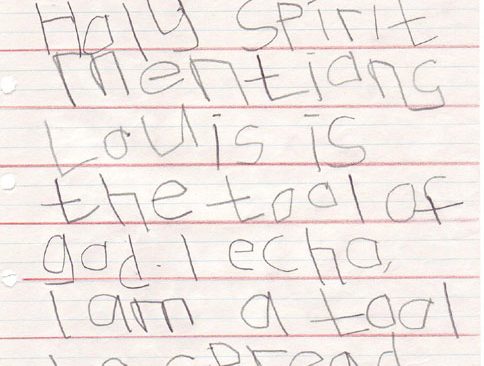 Holy Spirit
mentions
Louis is
the tool of
god. I echo,
I am a tool
to spread